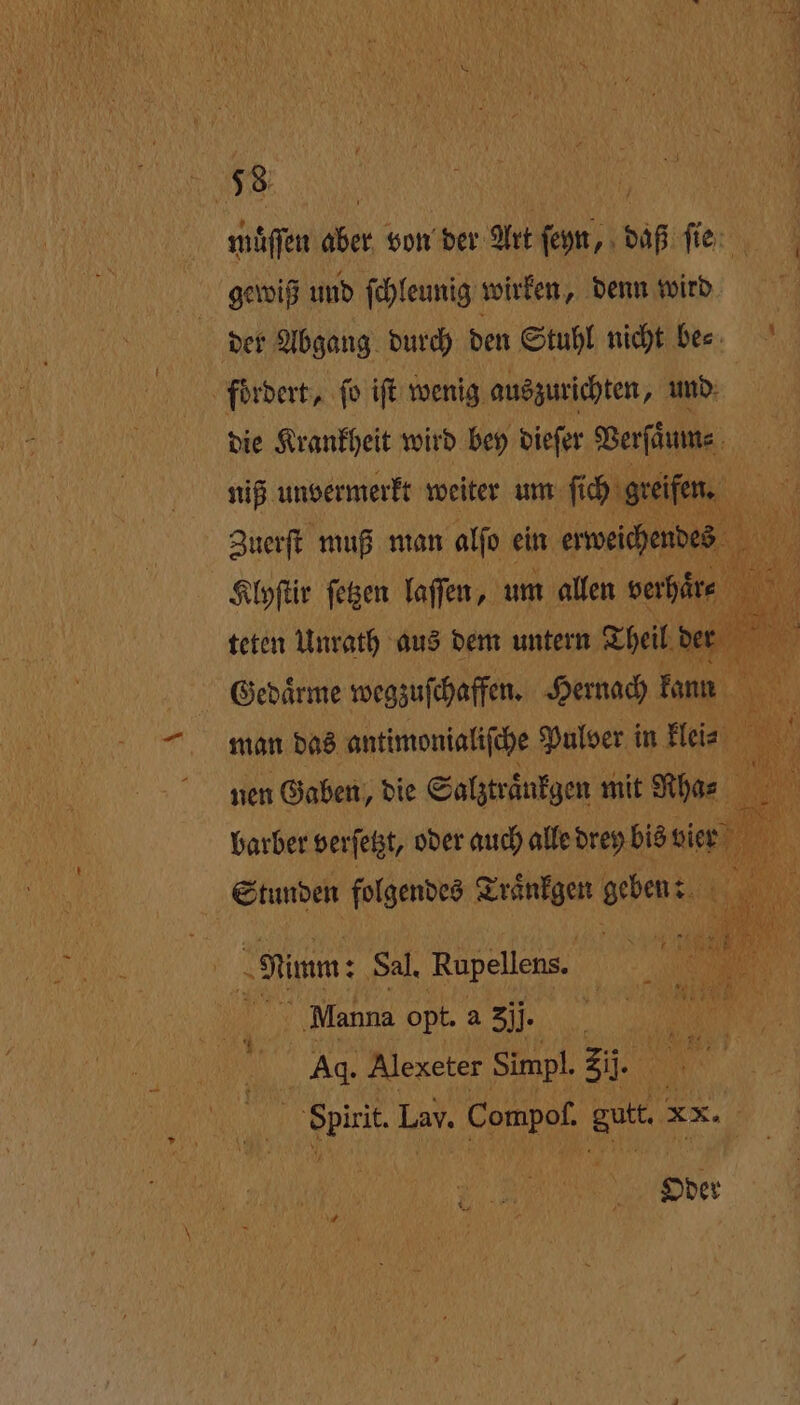 58
muͤſſen aber von der Art ſeyn, daß ſie
gewiß und ſchleunig wirken, denn wird
der Abgang durch den Stuhl nicht be⸗
foͤrdert, ſo iſt wenig auszurichten, und
die Krankheit wird bey dieſer Verſaͤum⸗
niß unvermerkt weiter um ſich greifen.
Zuerſt muß man alſo ein erweichendes
Klyſtir ſetzen laſſen, um allen verhaͤr⸗
teten Unrath aus dem untern Theil der
Gedaͤrme wegzuſchaffen. Hernach kann
man das antimonialiſche Pulver in klei⸗
nen Gaben, die Salztraͤnkgen mit Rha⸗
barber verſetzt, oder auch alle drey bis vier
Stunden folgendes Traͤnkgen geben:
Nimm: Sal. Rupellens.
Manna opt. a ʒij.
Aq. Alexeter Simpl. ℥ij.
Spirit. Lav. Compoſ. gutt. xx.
Oder